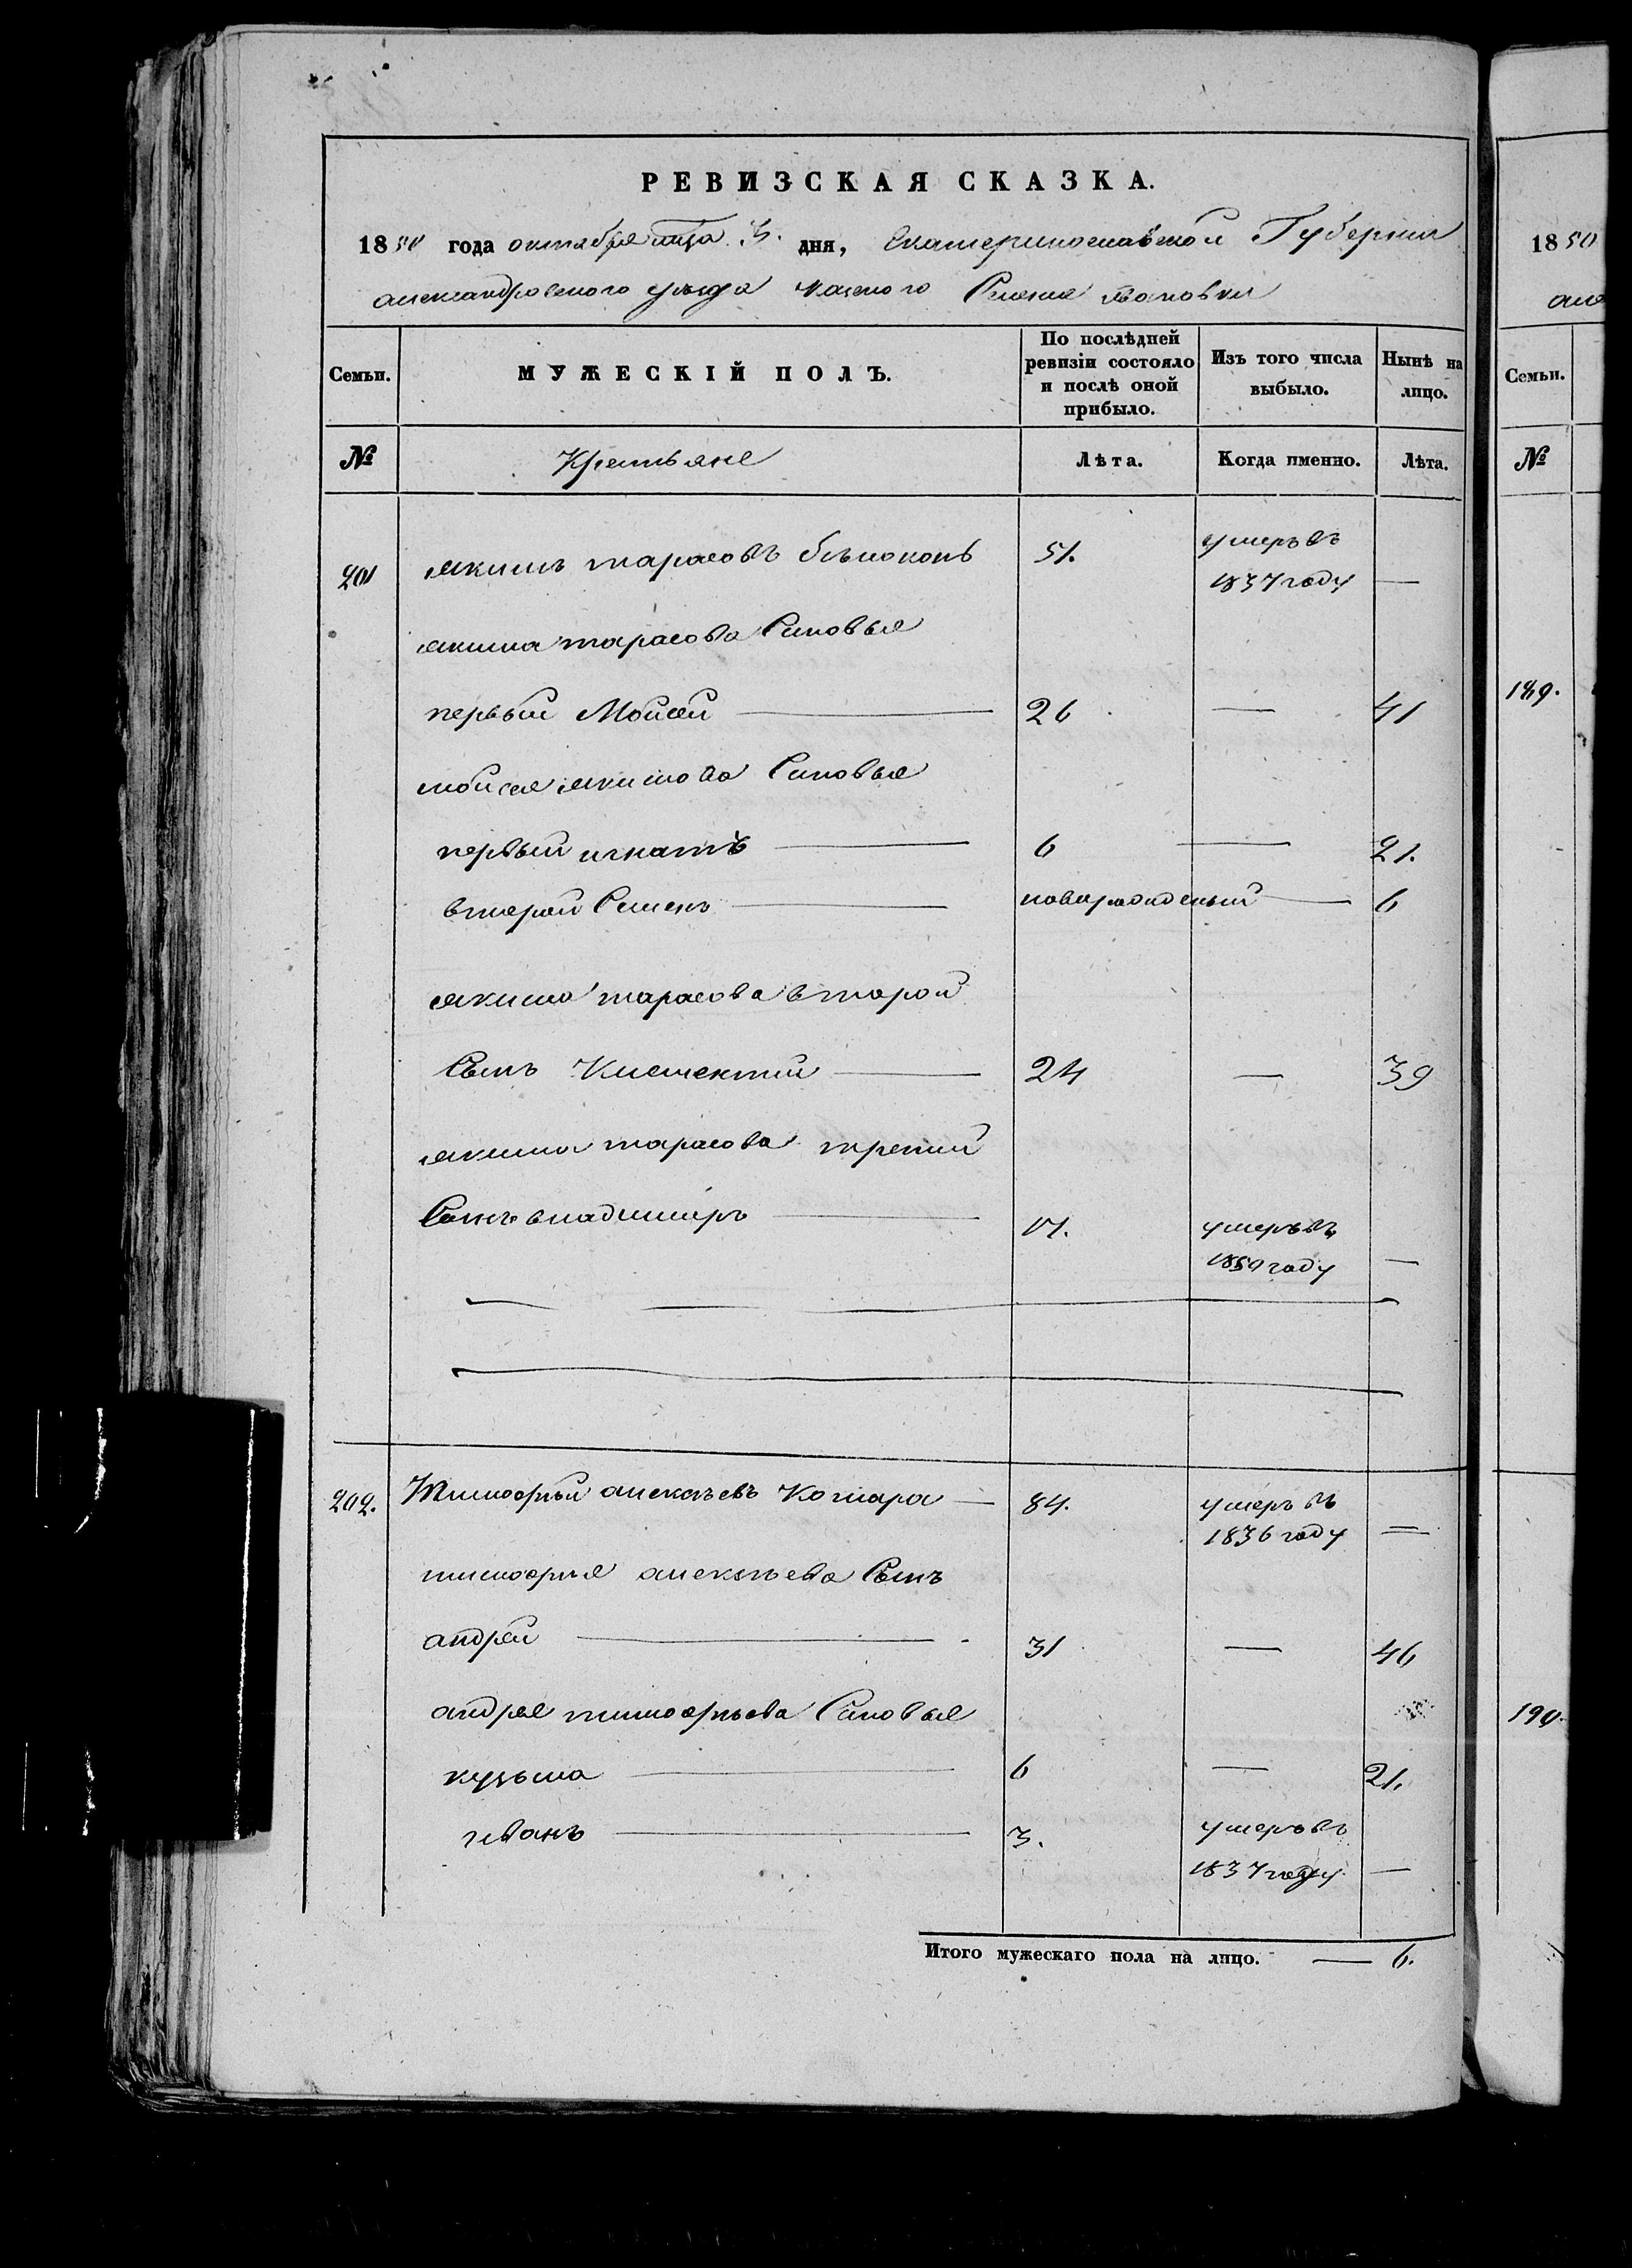 РЕВИЗСКАЯ СКАЗКА.
1850 года октября мца 3. дня, Екатеринославской Губернии
александровского уезда казеного Селения
Семьи. МУЖЕСКІЙ ПОЛЪ. По послѣдней ревизіи состояло и послѣ оной прибыло. Изъ того числа выбыло. Нынѣ на лицо.
№ Крестьяне Лѣта. Когда именно. Лѣта.
201 якимъ тарасовъ бѣлоконь 51. умеръ въ
1837 году —
якима тарасова Синовья
первый Мойсей — 26 — 41
мойсея якимова Синовья
первый игнатъ — 6 — 21.
второй Семенъ — новорожденый — 6
якима тарасова второй
Сынъ Климентий — 24 — 39
якима тарасова третий
Сынъ владимиръ — 17. умеръ въ
1850 году —
202. Тимофѣй алексѣевъ Комара — 84. умеръ въ
1836 году —
тимофѣя алексѣева Сынъ
андрей — 31 — 46
андрея тимофѣева Синовья
кузьма — 6 — 21.
иванъ — 3. умеръ въ
1837 году —
Итого мужескаго пола на лицо. — 6.
1850
але
Семьи.
№
189.
190.